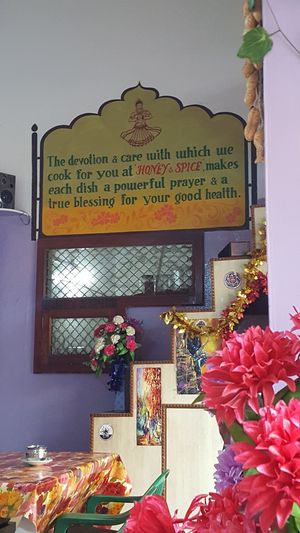 The devotion & care with which we
cook for you at 'HONEY & SPICE', makes
each dish a powerful prayer & a
true blessing for your good health.